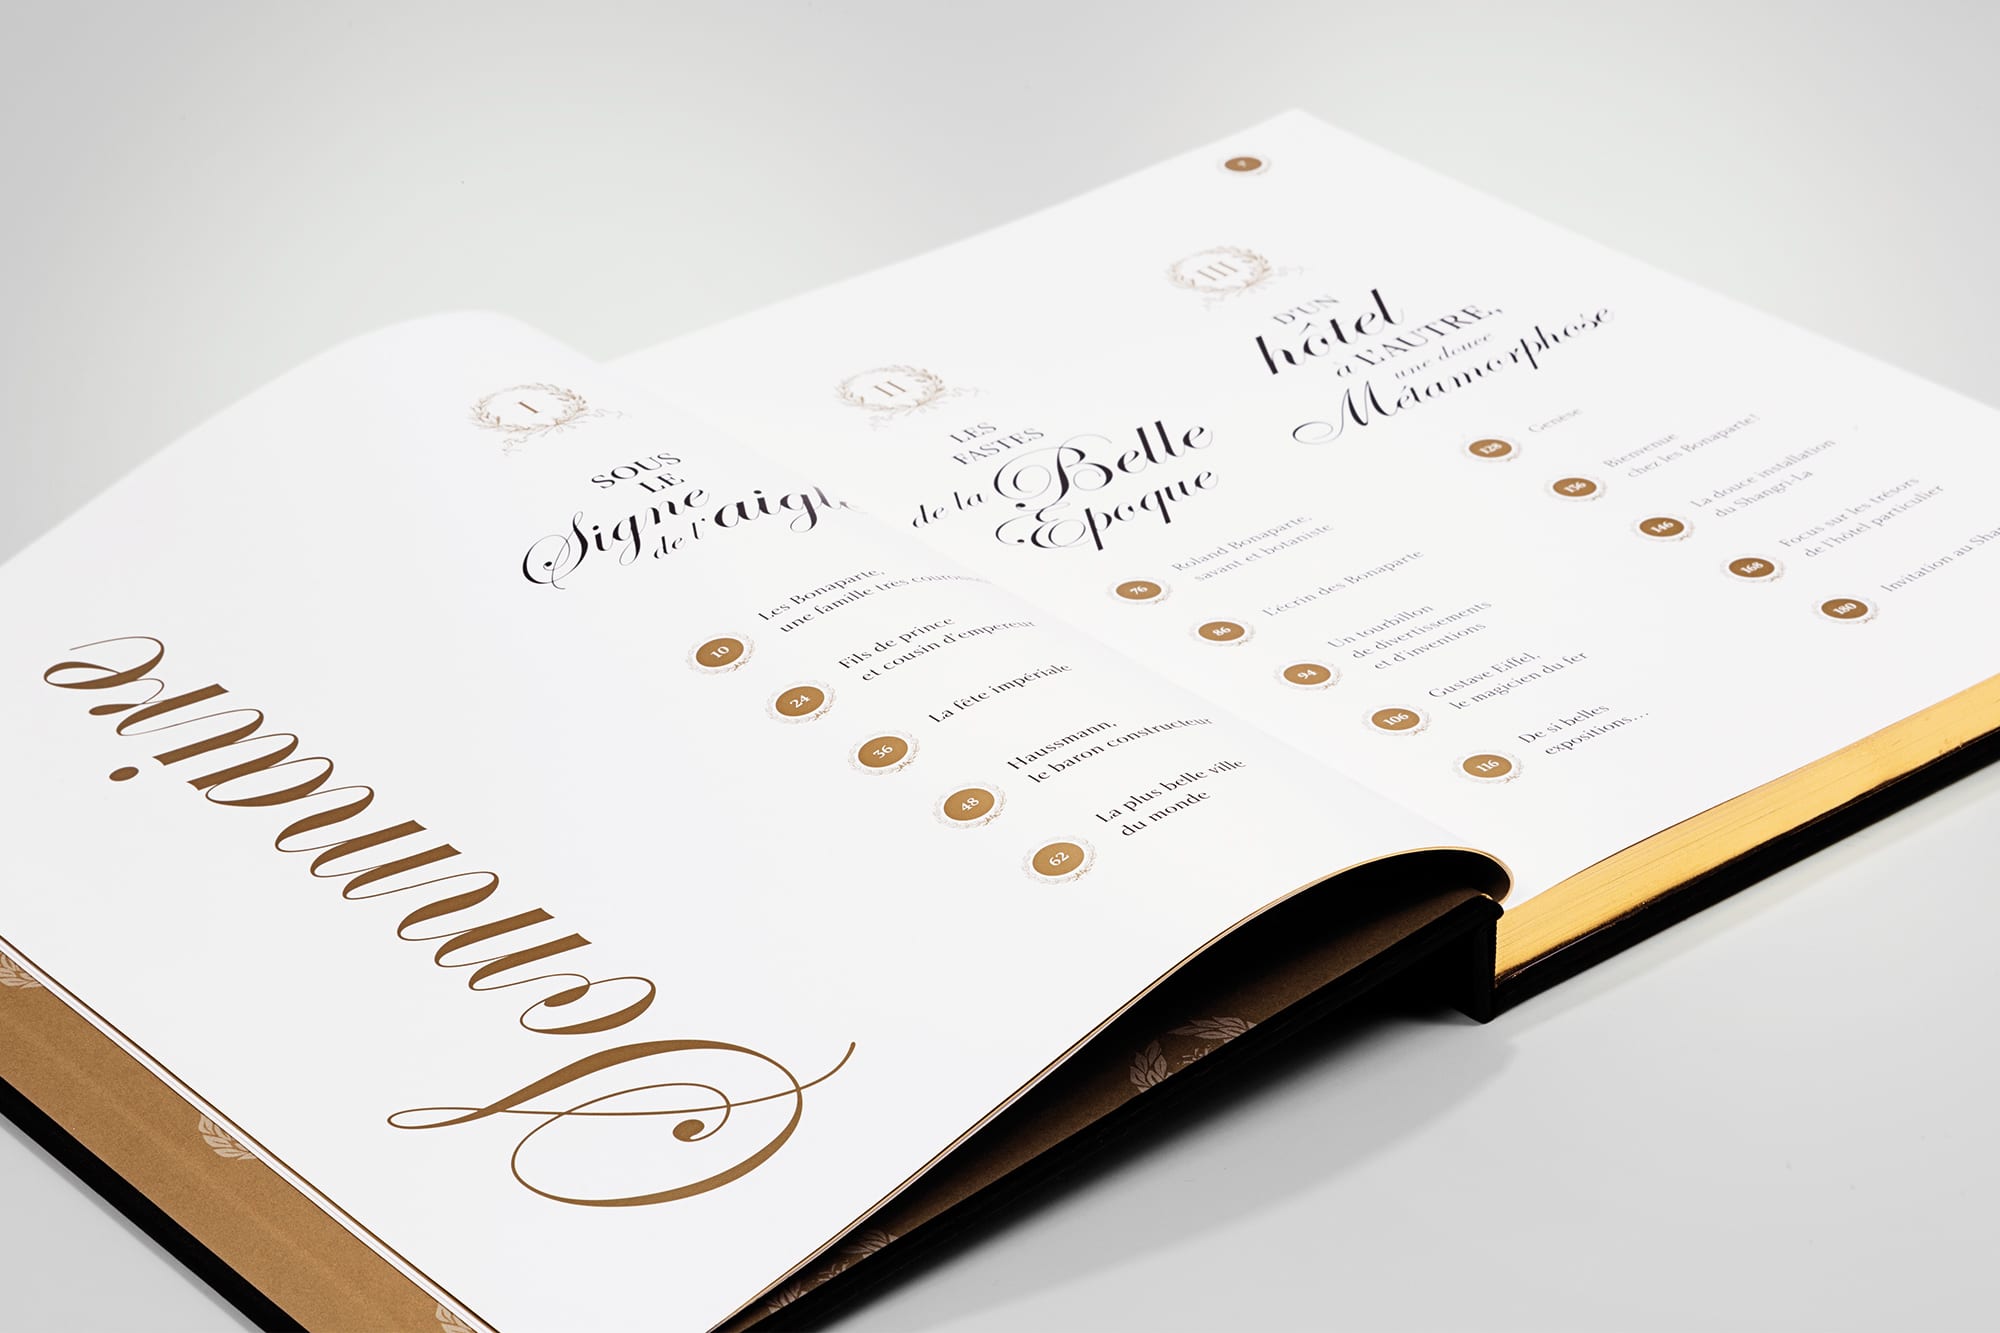 Sommaire
I
SOUS
LE
Signe
de l'aigle
10
Les Bonaparte,
une famille très couronnée
24
Fils de prince
et cousin d'empereur
36
La fête impériale
48
Haussmann,
le baron constructeur
62
La plus belle ville
du monde
II
LES
FASTES
de la Belle
Époque
76
Roland Bonaparte,
savant et botaniste
86
L'écrin des Bonaparte
94
Un tourbillon
de divertissements
et d'inventions
106
Gustave Eiffel,
le magicien du fer
116
De si belles
expositions...
III
D'UN
hôtel
à L'AUTRE,
une douce
Métamorphose
128
Genèse
136
Bienvenue
chez les Bonaparte!
146
La douce installation
du Shangri-La
168
Focus sur les trésors
de l'hôtel particulier
180
Invitation au Sha